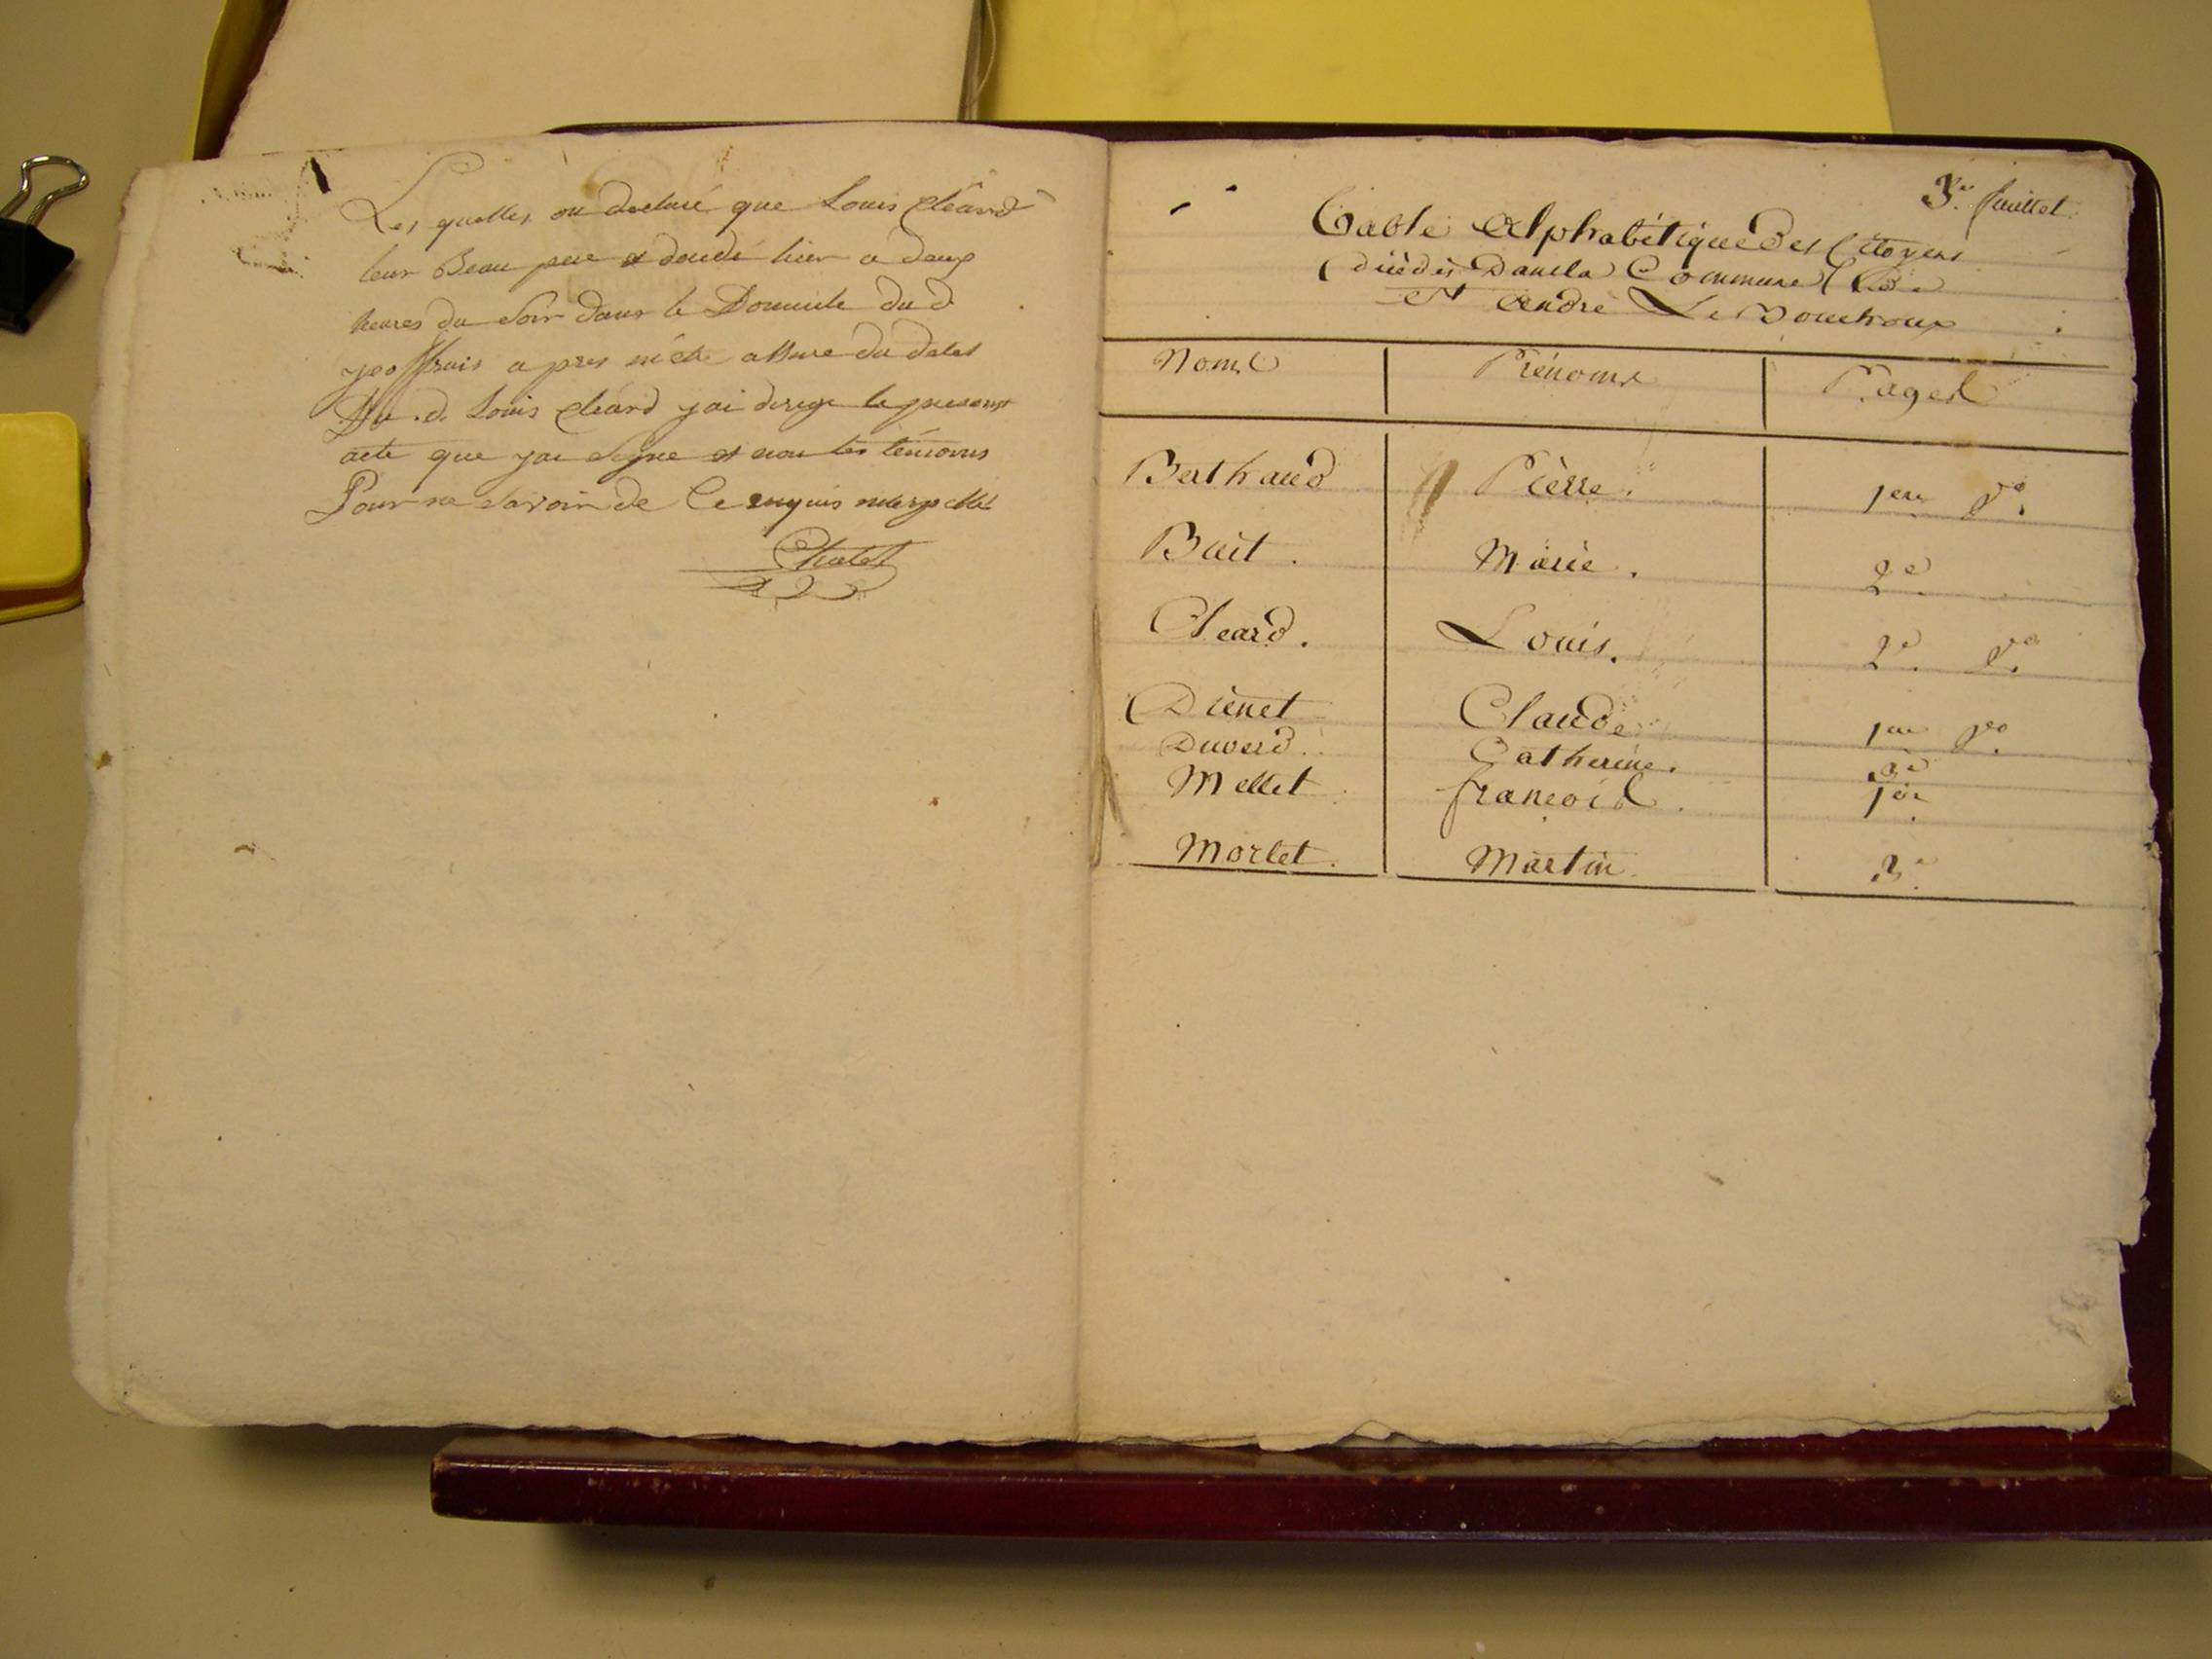 Les quelles on declaré que Louis Cléard
leur Beau pere et décédé hier a deux
heures du Soir dans le Domicile du d
jeoffrais apres mètre assure du deces
du .d. Louis Cléard jai dirige le presant
acte que jai Signe et non les témoins
Pour ne Savoir de Ce enquis interpellés
Chatel
3.e feuillet
Table Alphabétique des Citoyens
dècèdès Dans la Commune de
St André Le Bouchoux
Noms Prénoms Pages
Berthaud Pièrre. 1ere v.o
Buit. Marie. 2.e
Cleard. Louis. 2.e v.o
Dienet Claude 1ere v.o
Duverd. Catherine. 3.e
Mellet françois. 1ere
Morlet. Martin 3.e